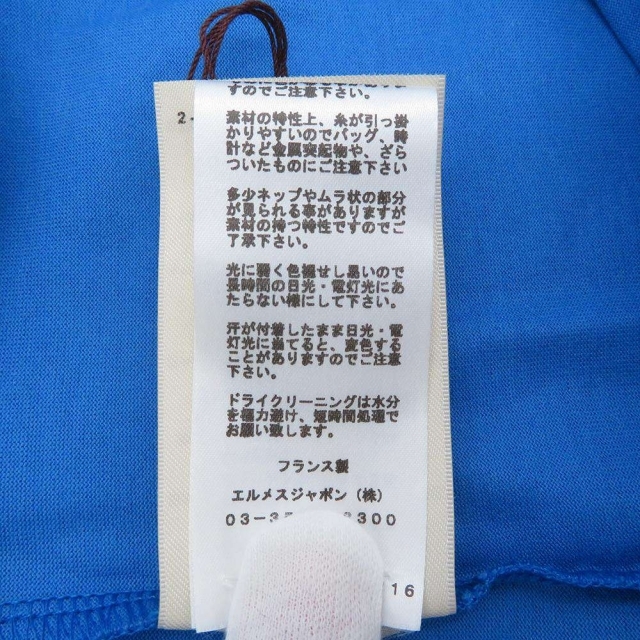 すのでご注意下さい。
2-
素材の特性上、糸が引っ掛
かりやすいのでバッグ、時
計など金属突起物や、ざら
ついたものにご注意下さい
多少ネップやムラ状の部分
が見られる事がありますが
素材の持つ特性ですのでご
了承下さい。
光に弱く色褪せし易いので
長時間の日光・電灯光にあ
たらない様にして下さい。
汗が付着したまま日光・電
灯光に当てると、変色する
ことがありますのでご注意
下さい。
ドライクリーニングは水分
を極力避け、短時間処理で
お願い致します。
フランス製
エルメスジャポン（株）
03-3 300
16